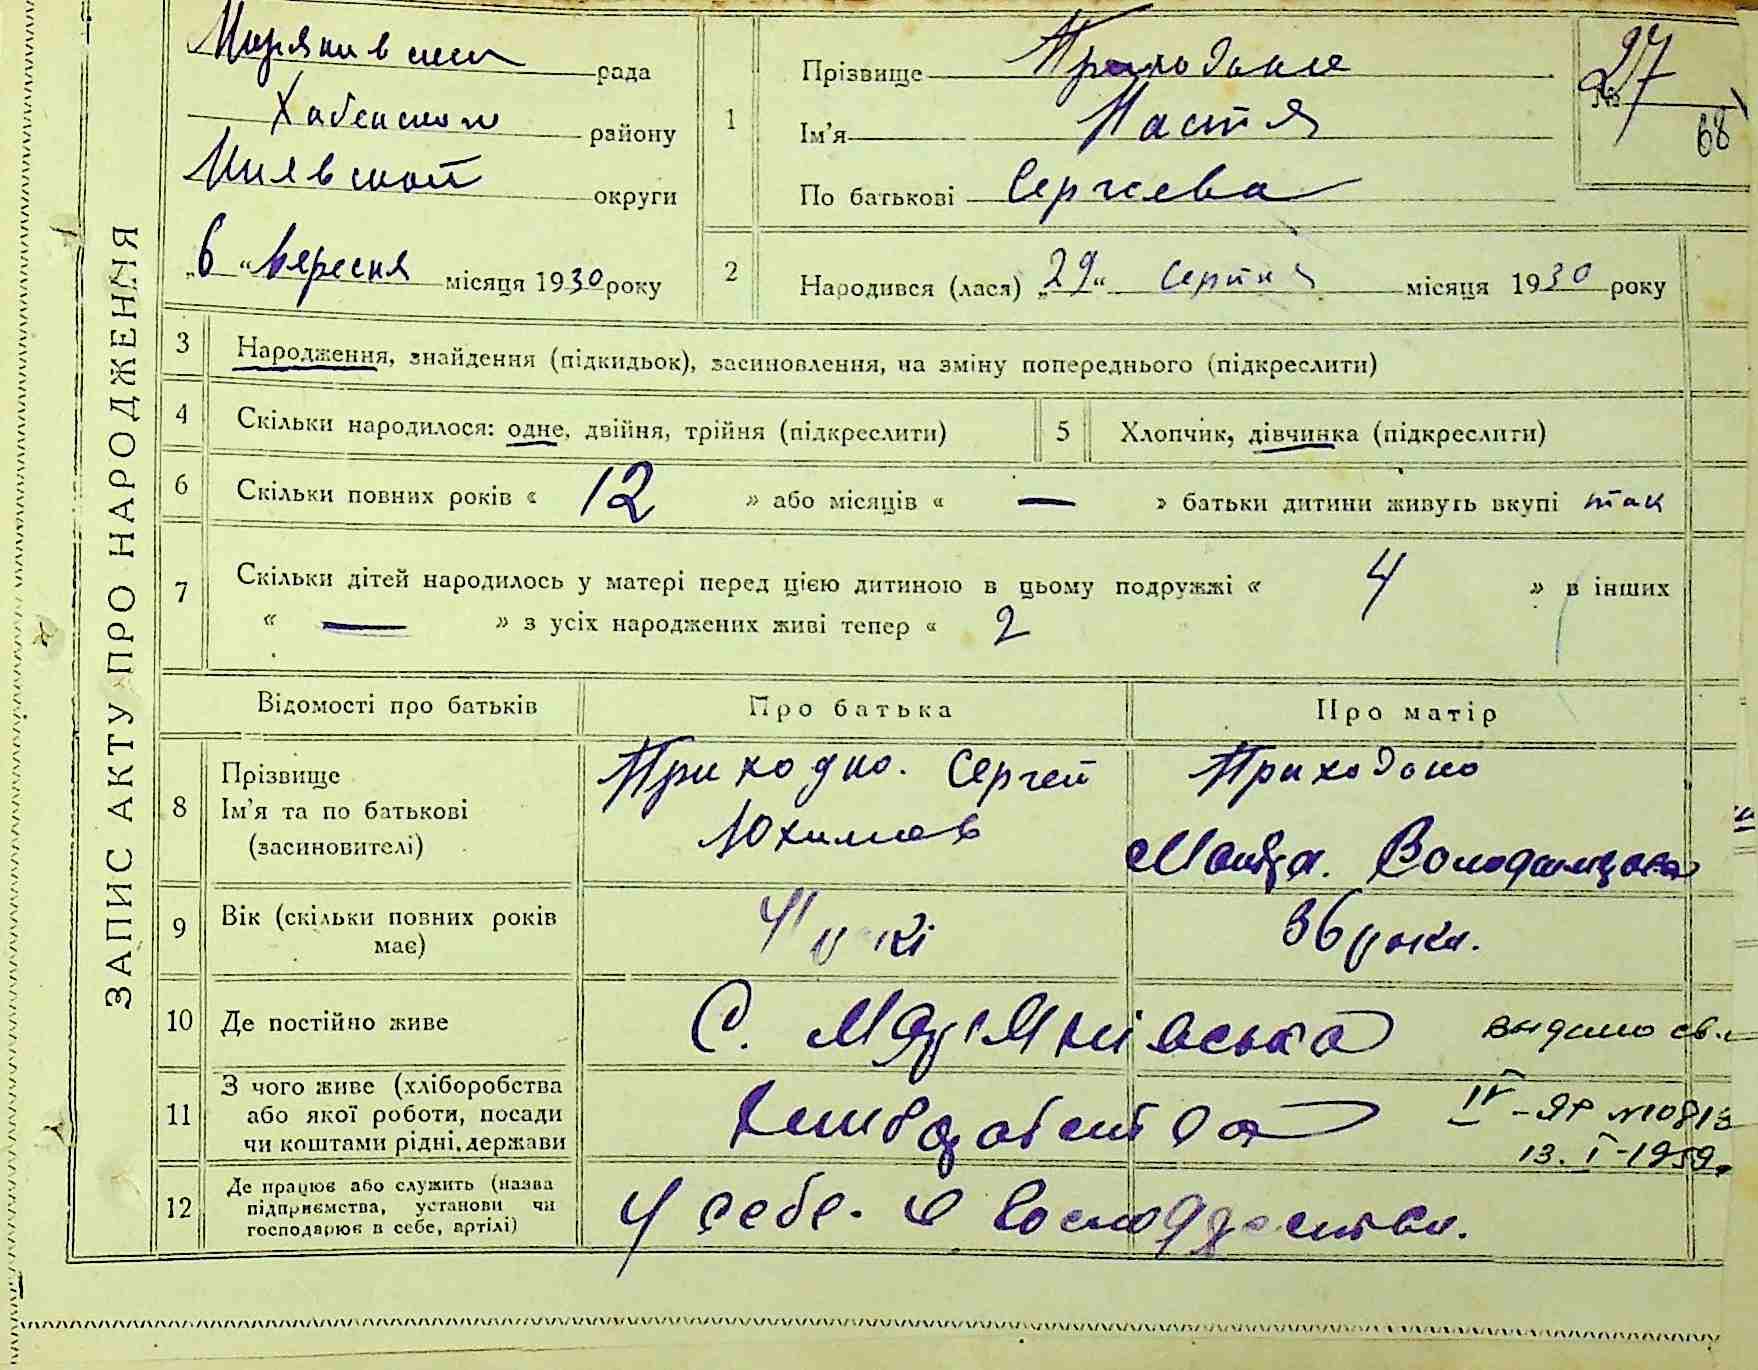 ЗАПИС АКТУ ПРО НАРОДЖЕННЯ
рада
Хабенского району
Київской округи
„6“ вересня місяця 1930 року
27
68
1 Прізвище Приходько
Ім'я Настя
По батькові Сергеева
2 Народився (лася) „29“ серпня місяця 1930 року
3 Народження, знайдення (підкидьок), засиновлення, на зміну попереднього (підкреслити)
4 Скільки народилося: одне, двійня, трійня (підкреслити)
5 Хлопчик, дівчинка (підкреслити)
6 Скільки повних років « 12 » або місяців « — » батьки дитини живуть вкупі так
7 Скільки дітей народилось у матері перед цією дитиною в цьому подружжі « 4 » в інших
« — » з усіх народжених живі тепер « 2
Відомості про батьків Про батька Про матір
8 Прізвище
Ім'я та по батькові
(засиновителі)
Приходко. Сергей
Юхимов
Приходько
9 Вік (скільки повних років
має)
41 рокі
36 роки.
10 Де постійно живе
С.
видано св.
11 З чого живе (хліборобства
або якої роботи, посади
чи коштами рідні, держави
IV-ЯР №
13. I-1959.
12 Де працює або служить (назва
підприємства, установи чи
господарює в себе, артілі)
У себе. в